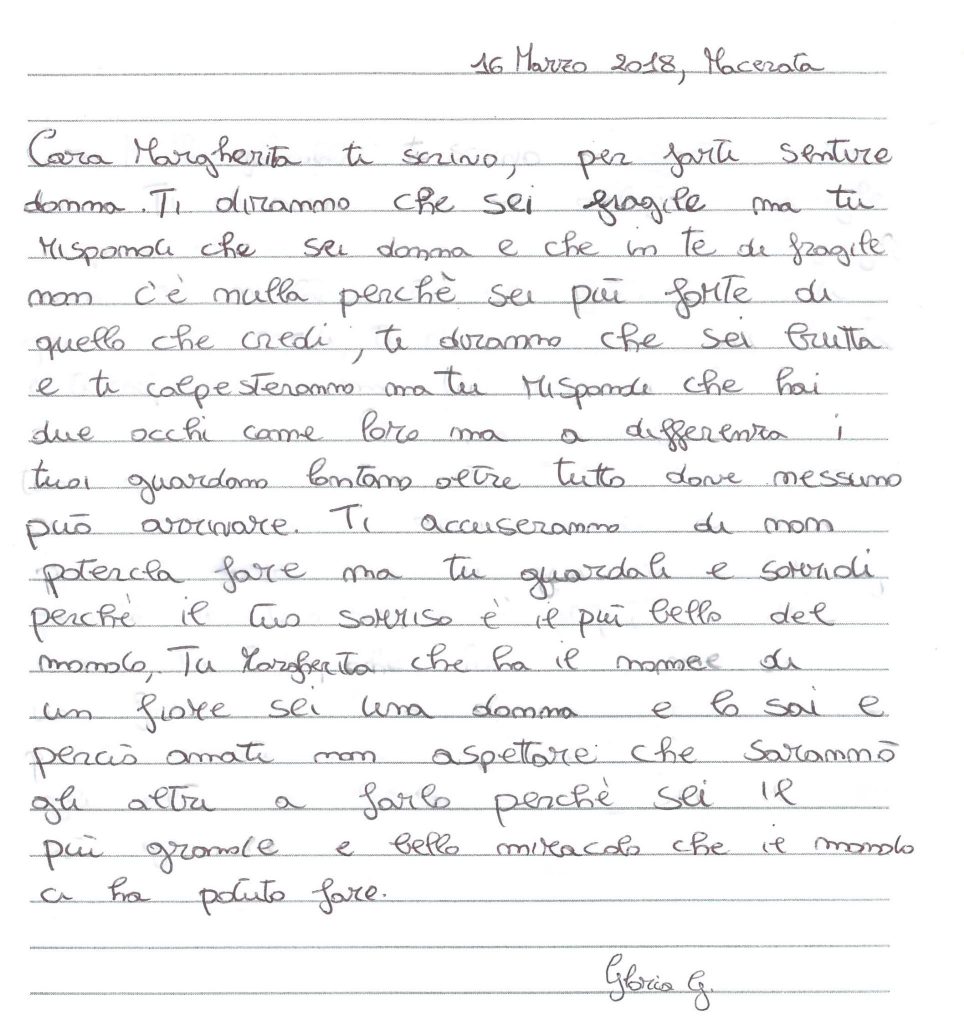 16 Marzo 2018, Macerata
Cara Margherita ti scrivo, per farti sentire
donna. Ti diranno che sei fragile ma tu
rispondi che sei donna e che in te di fragile
non c'è nulla perchè sei più forte di
quello che credi, ti diranno che sei brutta
e ti calpesteranno ma tu rispondi che hai
due occhi come loro ma a differenza i
tuoi guardano lontano oltre tutto dove nessuno
può arrivare. Ti accuseranno di non
potercela fare ma tu guardali e sorridi
perchè il tuo sorriso è il più bello del
mondo, Tu Margherita che ha il nome di
un fiore sei una donna e lo sai e
perciò amati non aspettare che saranno
gli altri a farlo perchè sei il
più grande e bello miracolo che il mondo
ci ha potuto fare.
Gloria G.